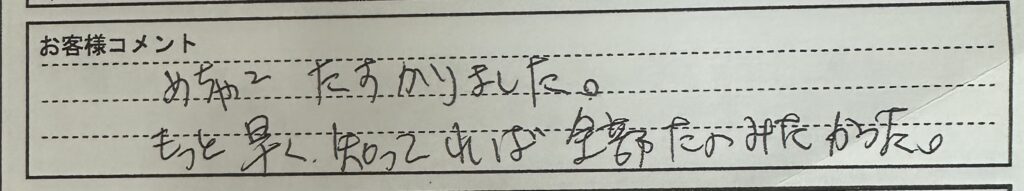 お客様コメント
めちゃ2 たすかりました。
もっと早く、知ってれば全部たのみたかった。